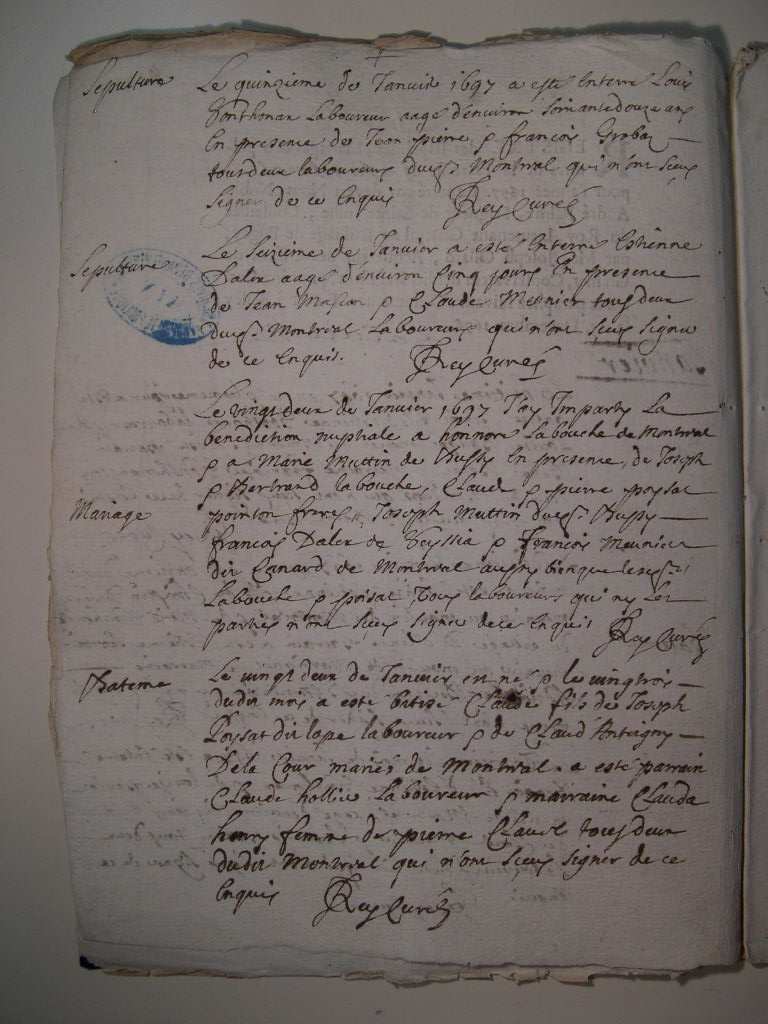 Sepulture
Le quinzieme de Janvier 1697 a esté Enterré Louis
Laboureur aagé d'environ Soixantedouze ans
En presence de Jean pierre & françois Grobaz
tousdeux laboureurs Montreal qui n'ont sceus
signer de ce Enquis JRey Curé
Sepulture
Le Seizieme de Janvier a esté Enterré Estienne
Dalex aagé d'environ Cinq jours En presence
de Jean Masson & Claude Meunier tousdeux
Montreal Laboureurs qui n'ont sceus signer
de ce Enquis. JRey Curé
Mariage
Le vingtdeux de Janvier 1697 J'ay Imparty La
benediction nuptiale a honnoré Labouche de Montreal
& a Marie Muttin de En presence, de Joseph
& Bertrand labouche, Claude & pierre poysat
frères, Joseph Muttin
françois Dalex de & françois Meunier
dit Canard de Montreal aussy bienque
Labouche & poisat, Tous laboureurs qui ny Les
parties n'ont sceus signer de ce Enquis JRey Curé
Bateme
Le vingtdeux de Janvier est né & le vingtrois
dudit mois a esté Claude fils de Joseph
Poysat dit lope laboureur & de Claud Anteigny
Dela Cour mariés de Montreal. a esté parrain
Claude hollie Laboureur & marraine Clauda
henry femme de pierre tousdeux
dudit Montreal qui n'ont sceus signer de ce
Enquis JRey Curé